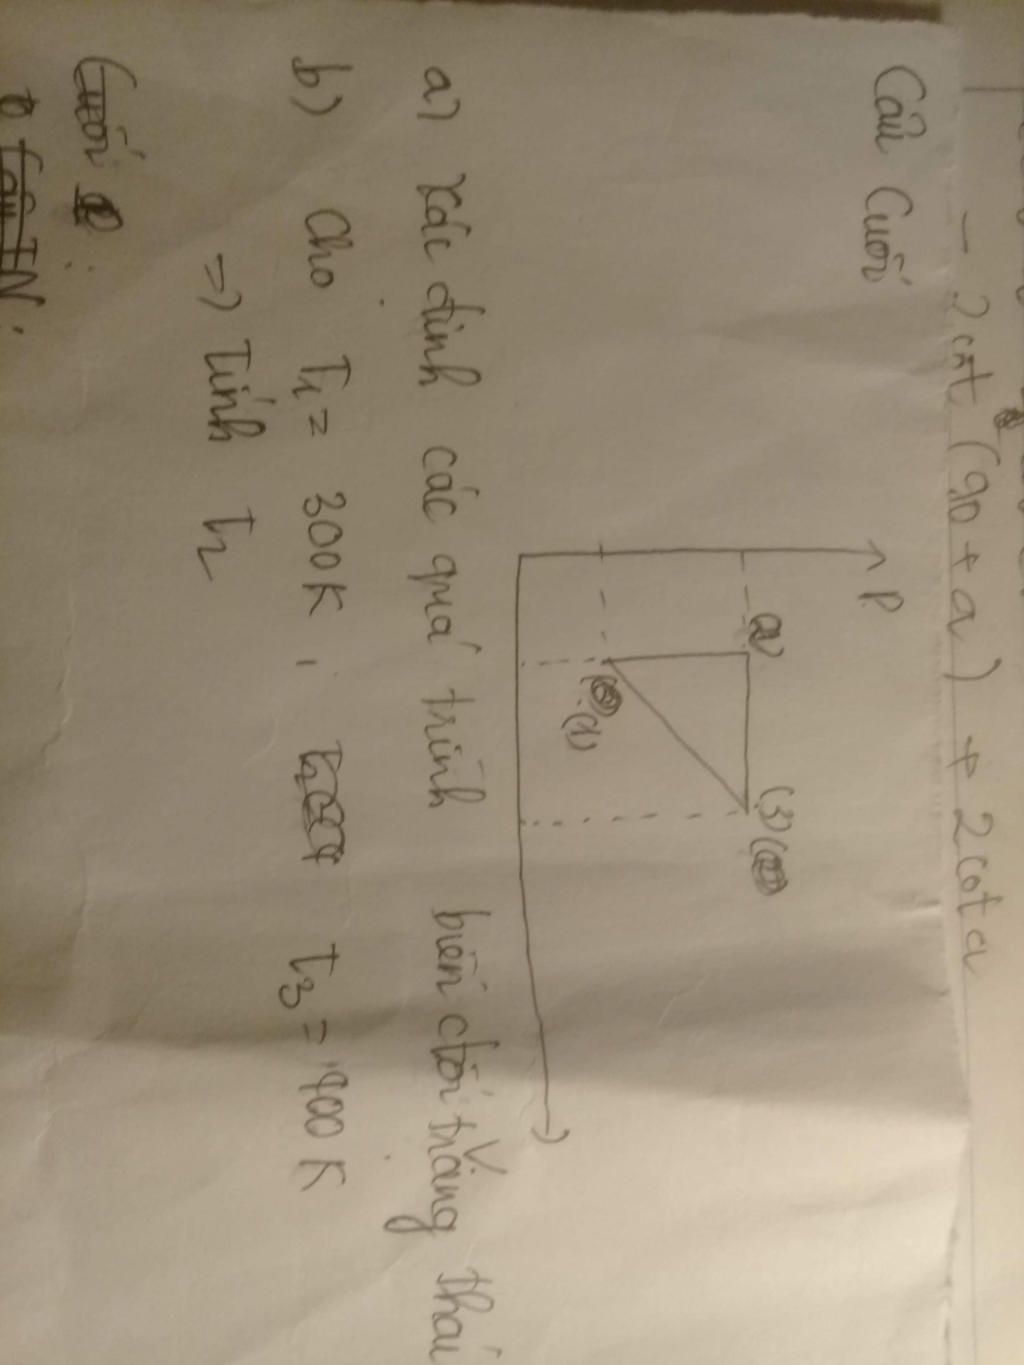 - 2cot (90 + a) + 2cot a
Câu cuối
P
(2)
(3)
(1)
V
a) Xác định các quá trình biến đổi trạng thái
b) Cho T1 = 300K, T3 = 900 K
=) Tính T2
Cuối